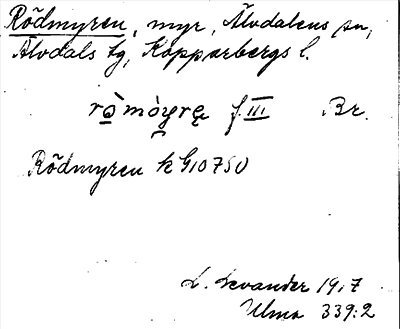 Rödmyren, myr, Älvdalens sn,
Älvdals tg, Kopparbergs l.
f. III Br.
Rödmyren k G10750
L. Levander 1917
Ulma 339:2